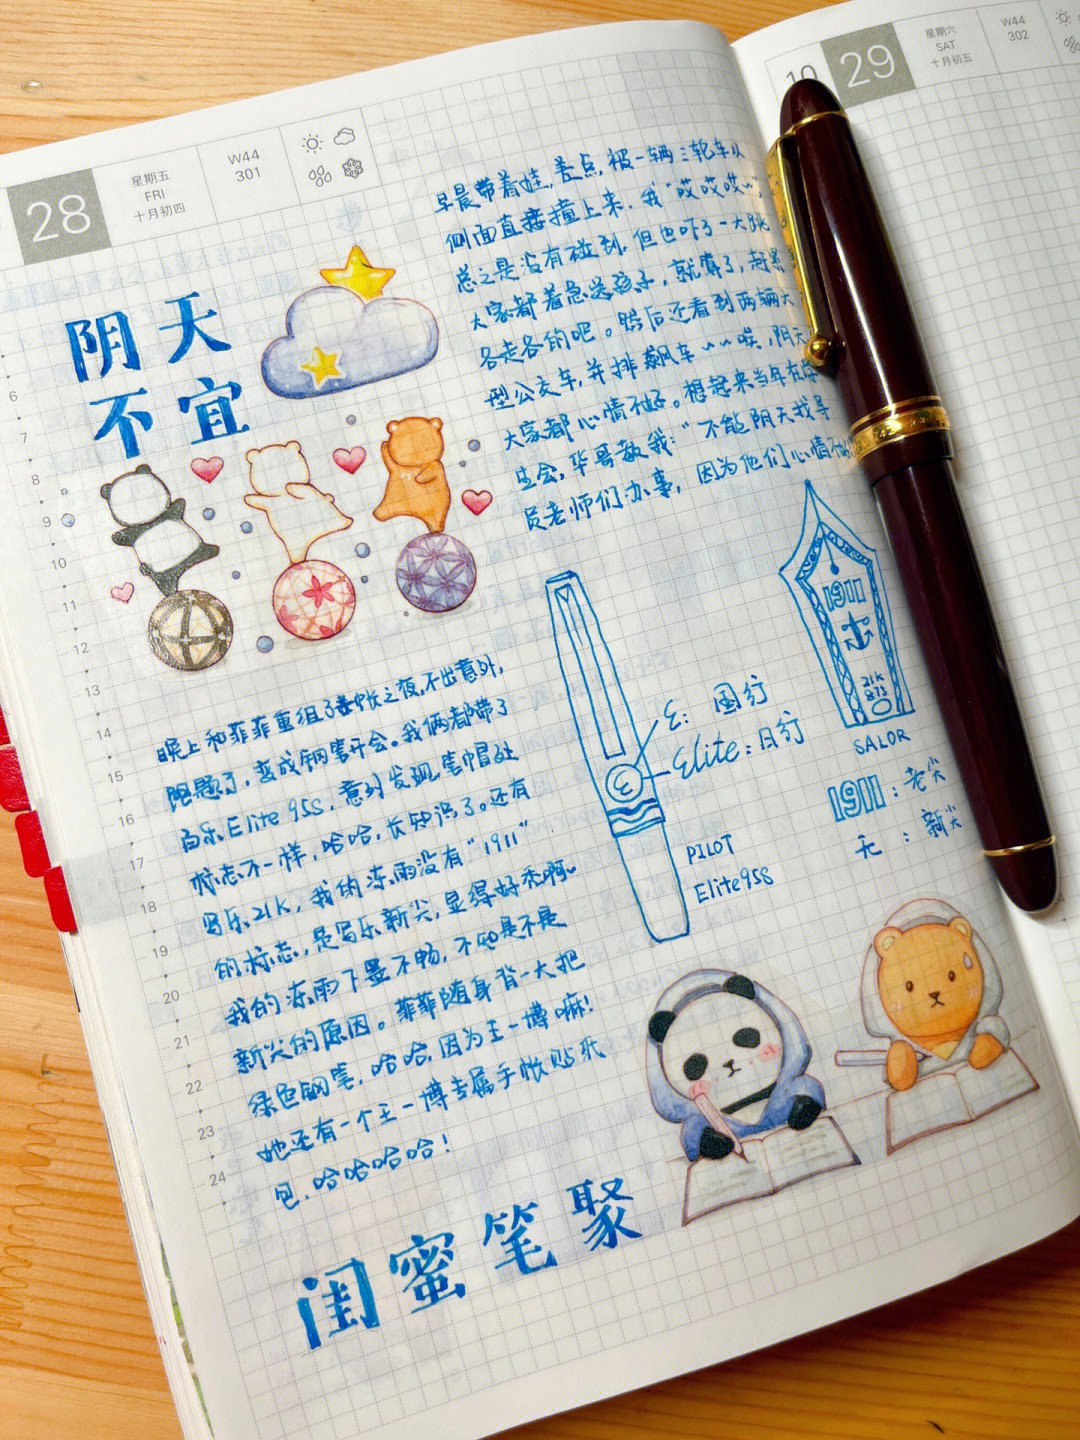 28
星期五
FRI
十月初四
W44
301
10
29
星期六
SAT
十月初五
W44
302
阴天
不宜
早晨带着娃,差点,被一辆三轮车从
侧面直接撞上来,我"哎哎哎~",
总之是没有碰到,但也吓了一大跳
大家都着急送孩子,就算了,赶紧
各走各的吧。然后还看到两辆大
型公交车,并排飙车~~唉,阴天
大家都心情不好。想起来当年在学
生会,华哥教我:"不能阴天找导
员老师们办事,因为他们心情不好
6
7
8
9
10
11
12
13
14
15
16
17
18
19
20
21
22
23
24
晚上和菲菲重组了手帐之夜,不出意外,
跑题了,变成钢笔开会。我俩都带了
百乐Elite 95s,意外发现笔帽处
标志不一样,哈哈,长知识了。还有
写乐21K,我的冻雨没有"1911"
的标志,是写乐新尖,显得好秃啊~
我的冻雨下墨不畅,不知是不是
新尖的原因。菲菲随身背一大把
绿色钢笔,哈哈,因为王一博嘛!
她还有一个王一博专属手帐贴纸
包,哈哈哈哈!
ε: 国行
Elite: 日行
PILOT
Elite95s
1911
21K
875
SALOR
1911:老尖
无:新尖
闺蜜笔聚